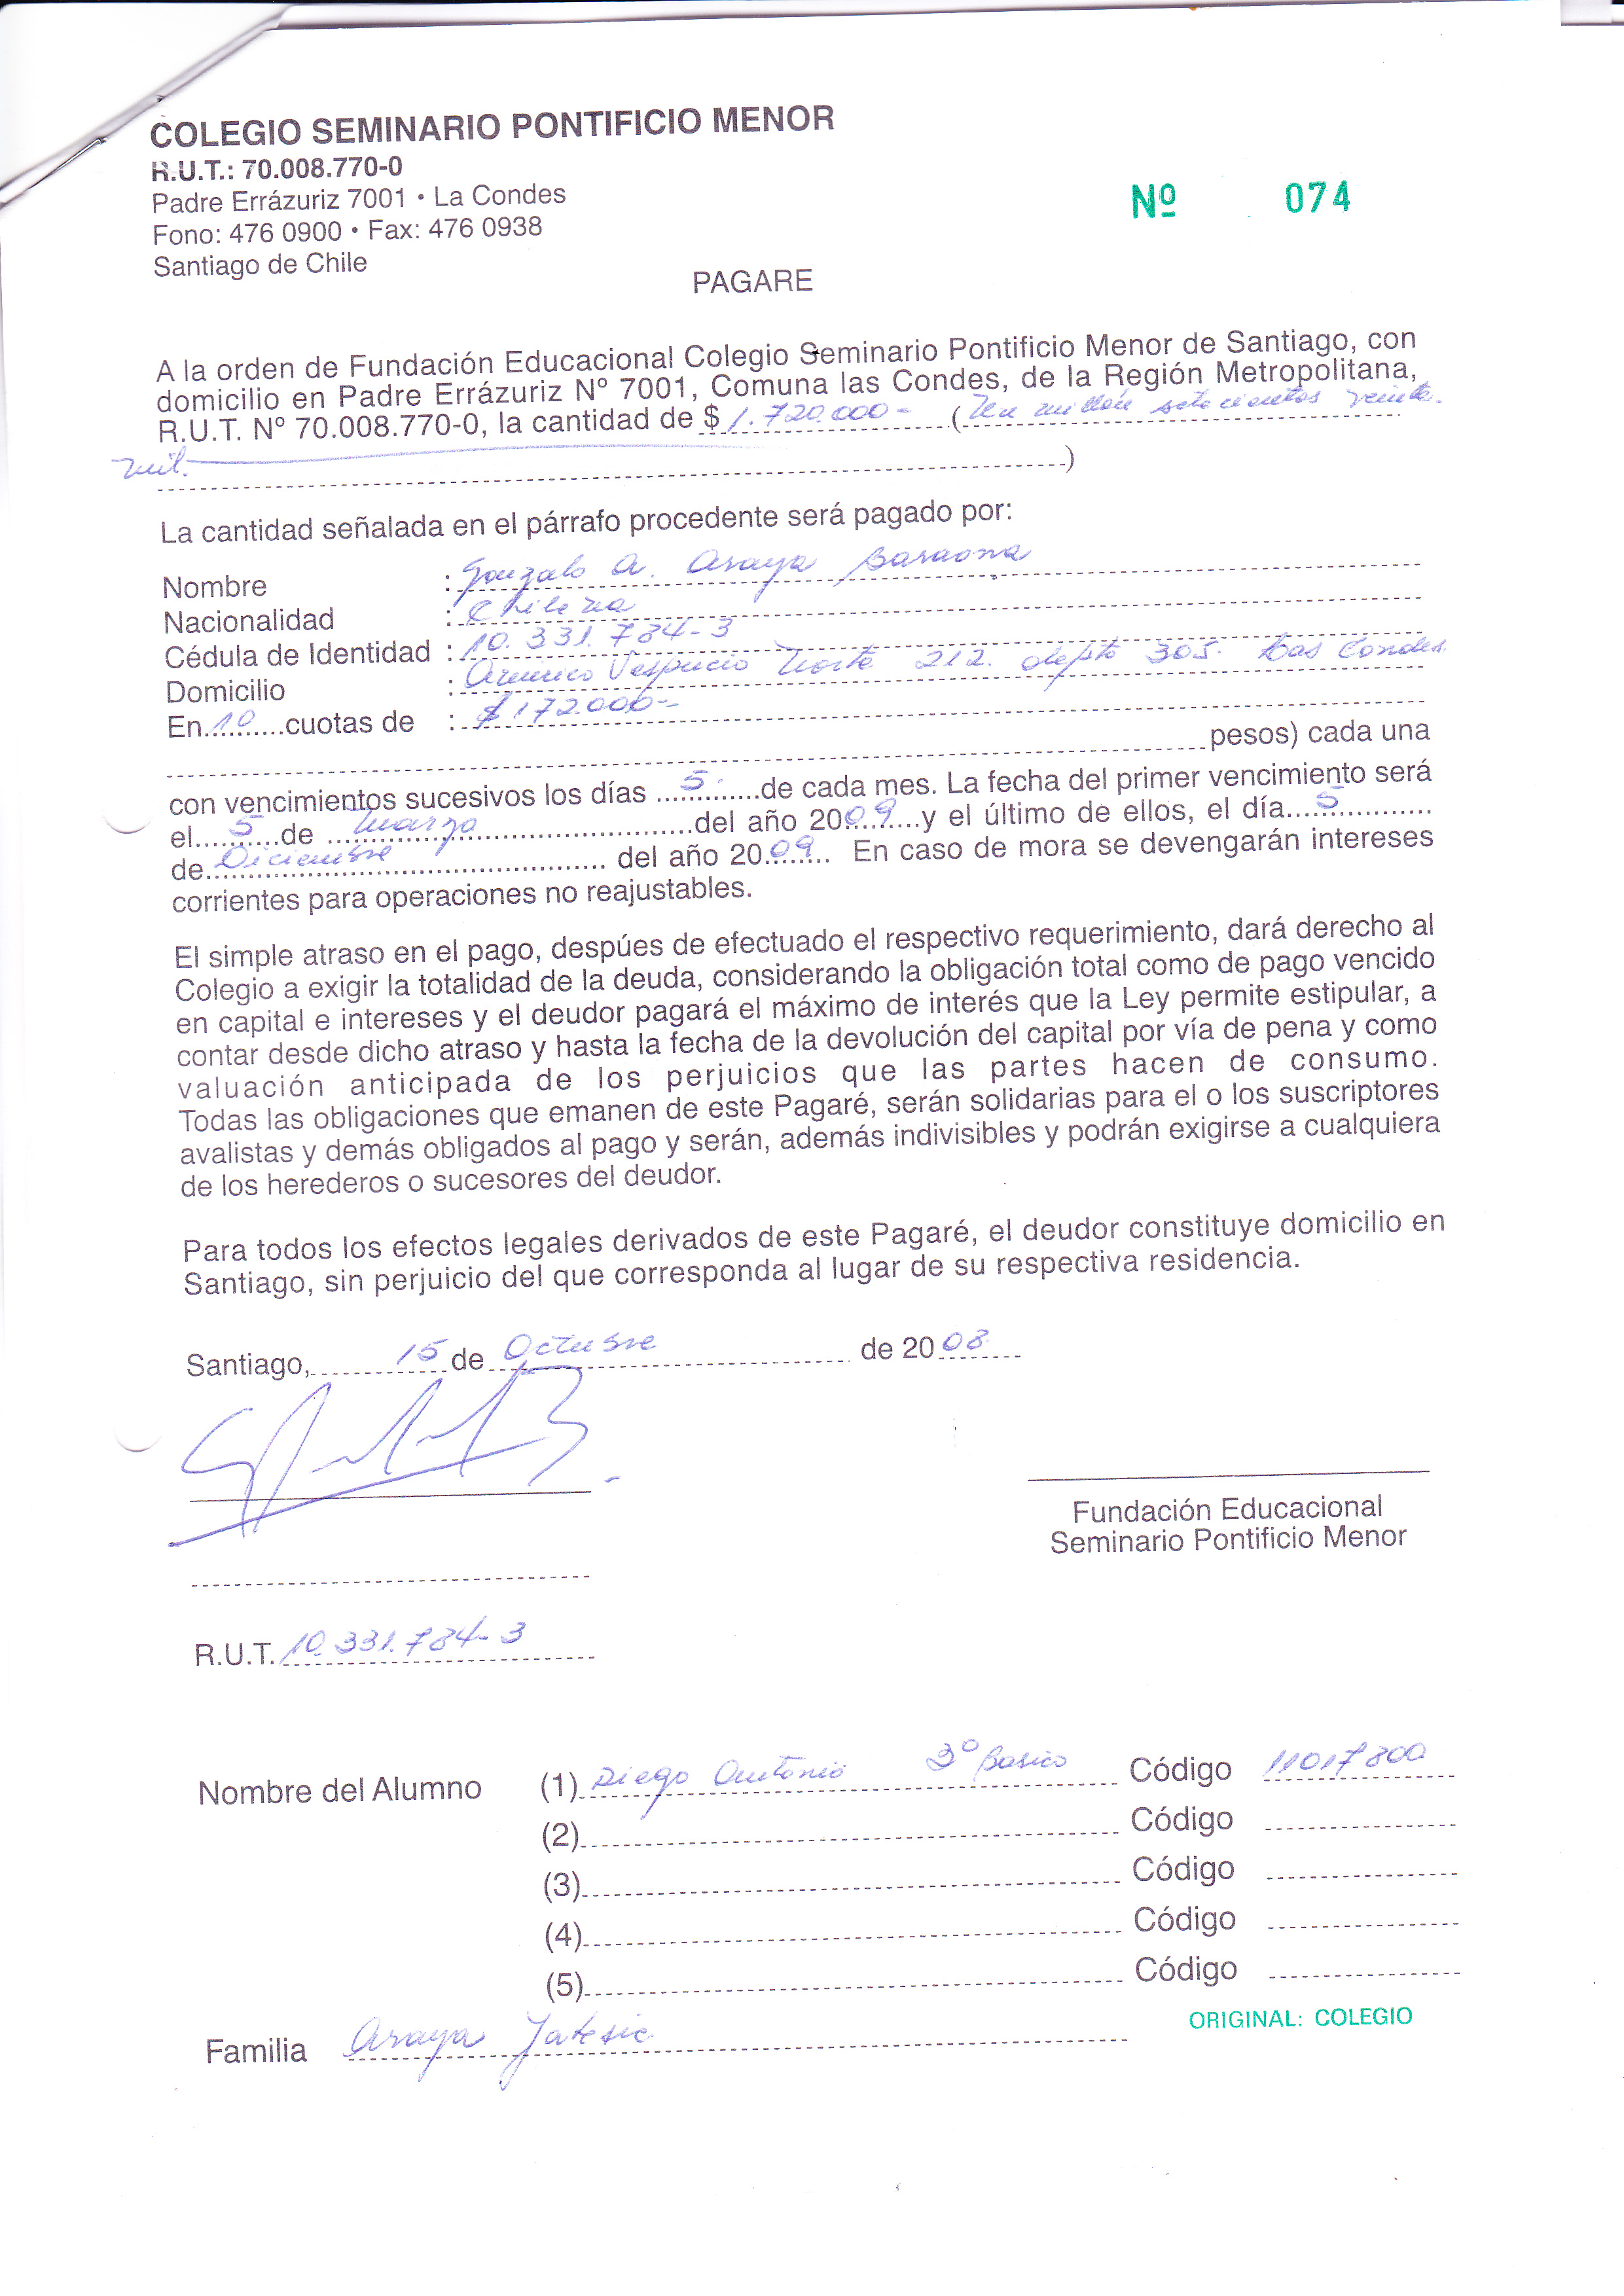 COLEGIO SEMINARIO PONTIFICIO MENOR
R.U.T.: 70.008.770-0
Padre Errázuriz 7001 • La Condes
Fono: 476 0900 • Fax: 476 0938
Santiago de Chile
Nº 074
PAGARE
A la orden de Fundación Educacional Colegio Seminario Pontificio Menor de Santiago, con
domicilio en Padre Errázuriz Nº 7001, Comuna las Condes, de la Región Metropolitana,
R.U.T. Nº 70.008.770-0, la cantidad de $ 1.720.000- (Un millón setecientos veinte
mil. )
La cantidad señalada en el párrafo procedente será pagado por:
Nombre : Gonzalo A. Araya Baraona
Nacionalidad : Chilena
Cédula de Identidad : 10.331.784-3
Domicilio : Americo Vespucio Norte 212. depto 305. Las Condes
En 10 cuotas de : $172.000-
pesos) cada una
con vencimientos sucesivos los días 5 de cada mes. La fecha del primer vencimiento será
el 5 de Marzo del año 2009 y el último de ellos, el día 5
de Diciembre del año 2009. En caso de mora se devengarán intereses
corrientes para operaciones no reajustables.
El simple atraso en el pago, despúes de efectuado el respectivo requerimiento, dará derecho al
Colegio a exigir la totalidad de la deuda, considerando la obligación total como de pago vencido
en capital e intereses y el deudor pagará el máximo de interés que la Ley permite estipular, a
contar desde dicho atraso y hasta la fecha de la devolución del capital por vía de pena y como
valuación anticipada de los perjuicios que las partes hacen de consumo.
Todas las obligaciones que emanen de este Pagaré, serán solidarias para el o los suscriptores
avalistas y demás obligados al pago y serán, además indivisibles y podrán exigirse a cualquiera
de los herederos o sucesores del deudor.
Para todos los efectos legales derivados de este Pagaré, el deudor constituye domicilio en
Santiago, sin perjuicio del que corresponda al lugar de su respectiva residencia.
Santiago, 15 de Octubre de 2008
Fundación Educacional
Seminario Pontificio Menor
R.U.T. 10.331.784-3
Nombre del Alumno (1) Diego Antonio 3º Basico Código 11017800
(2) Código
(3) Código
(4) Código
(5) Código
ORIGINAL: COLEGIO
Familia Araya